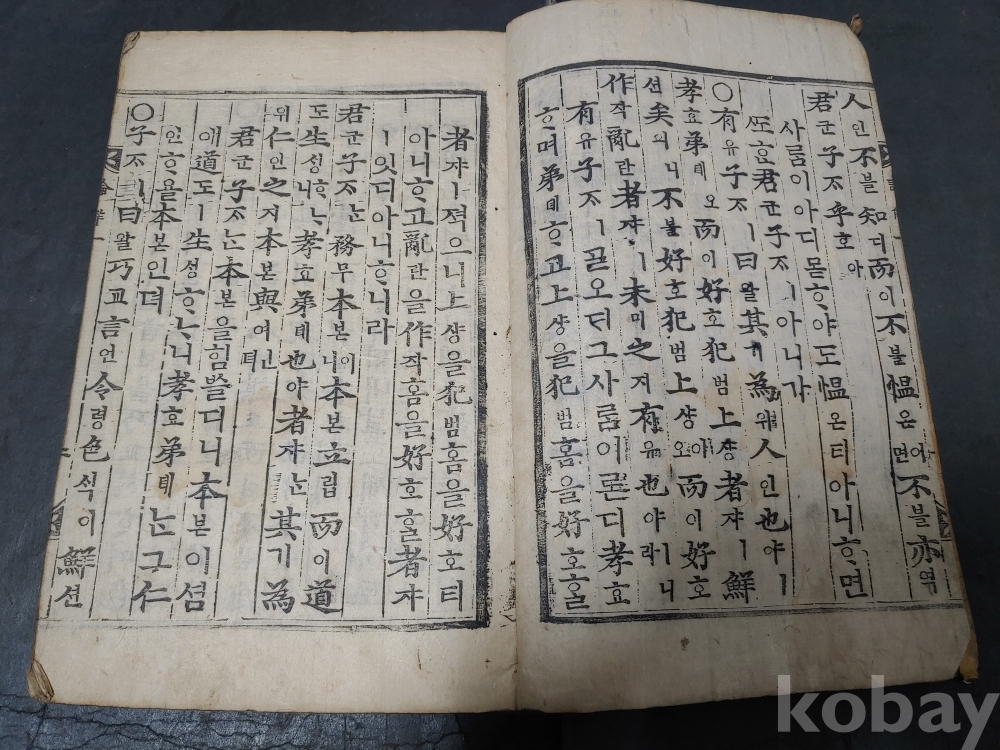 人인不블知디而이不블慍온이어면不블亦역
君군子ᄌᆞ乎호아
사ᄅᆞᆷ이아디몯ᄒᆞ야도慍온티아니ᄒᆞ면
ᄯᅩᄒᆞᆫ君군子ᄌᆞㅣ아니가
○有유子ᄌᆞㅣ曰왈其기爲위人인也야ㅣ
孝효弟뎨오而이好호犯범上샹야者쟈ㅣ鮮
션矣의니不블好호犯범上샹오而이好호
作작亂란者쟈ㅣ未미之지有유也야ㅣ니라
有유子ᄌᆞㅣᄀᆞᆯ오ᄃᆡ그사ᄅᆞᆷ이론디孝효
ᄒᆞ며弟뎨ᄒᆞ고上샹을犯범홈을好호ᄒᆞᆯ
者쟈ㅣ젹으니上샹을犯범홈을好호티
아니ᄒᆞ고亂란을作작홈을好호ᄒᆞᆯ者쟈
ㅣ잇디아니ᄒᆞ니라
君군子ᄌᆞᄂᆞᆫ務무本본이니本본立립而이道
도生ᄉᆡᆼᄒᆞᄂᆞ니孝효弟뎨也야者쟈ᄂᆞᆫ其기爲
위仁인之지本본與여인뎌
君군子ᄌᆞᄂᆞᆫ本본을힘ᄡᅳᆯ디니本본이셤
애道도ㅣ生ᄉᆡᆼᄒᆞᄂᆞ니孝효弟뎨ᄂᆞᆫ그仁
인ᄒᆞ욜本본인뎌
○子ᄌᆞㅣ曰왈巧교言언令령色ᄉᆡᆨ이鮮션
kobay